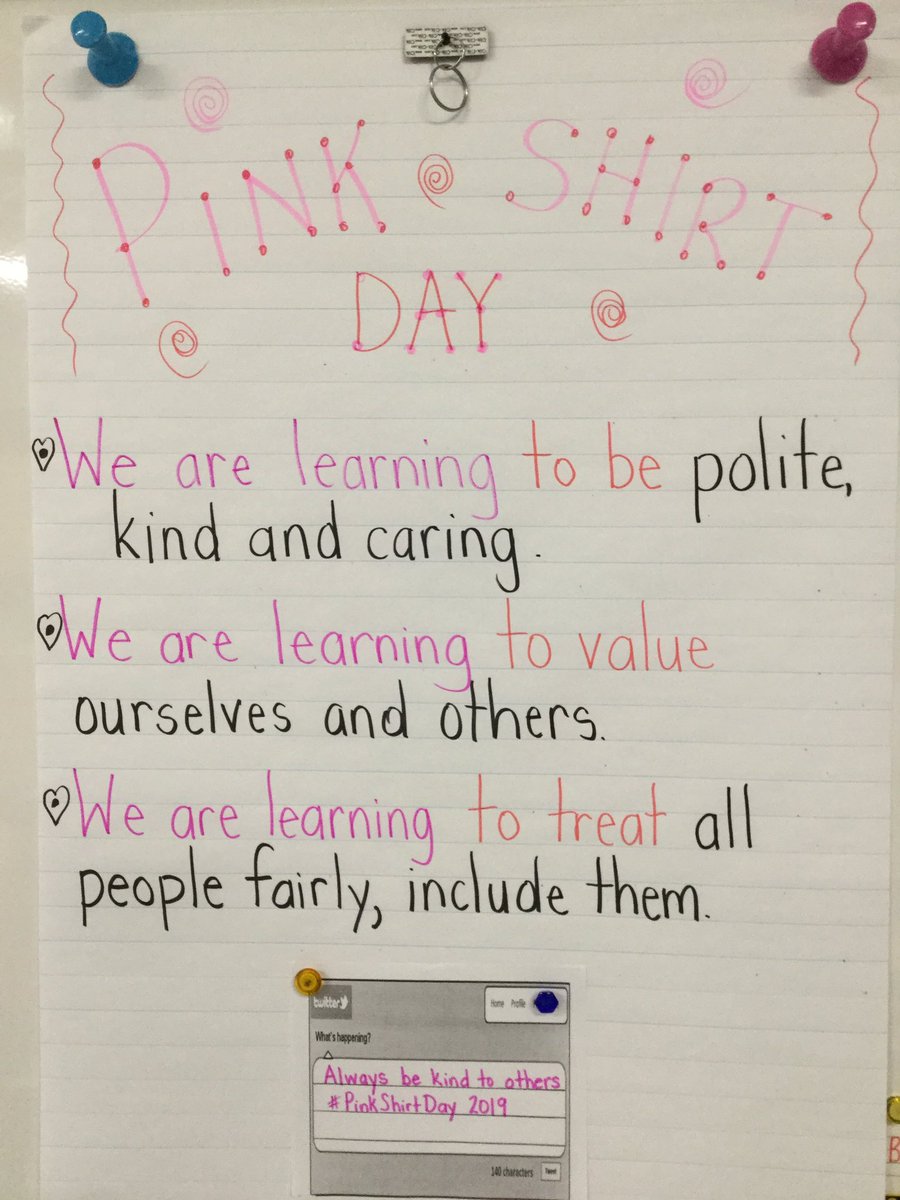 PINK SHIRT
DAY
We are learning to be polite,
kind and caring.
We are learning to value
ourselves and others.
We are learning to treat all
people fairly, include them.
twitter
Home Profile
What's happening?
Always be kind to others
#PinkShirtDay 2019
140 characters Tweet
B